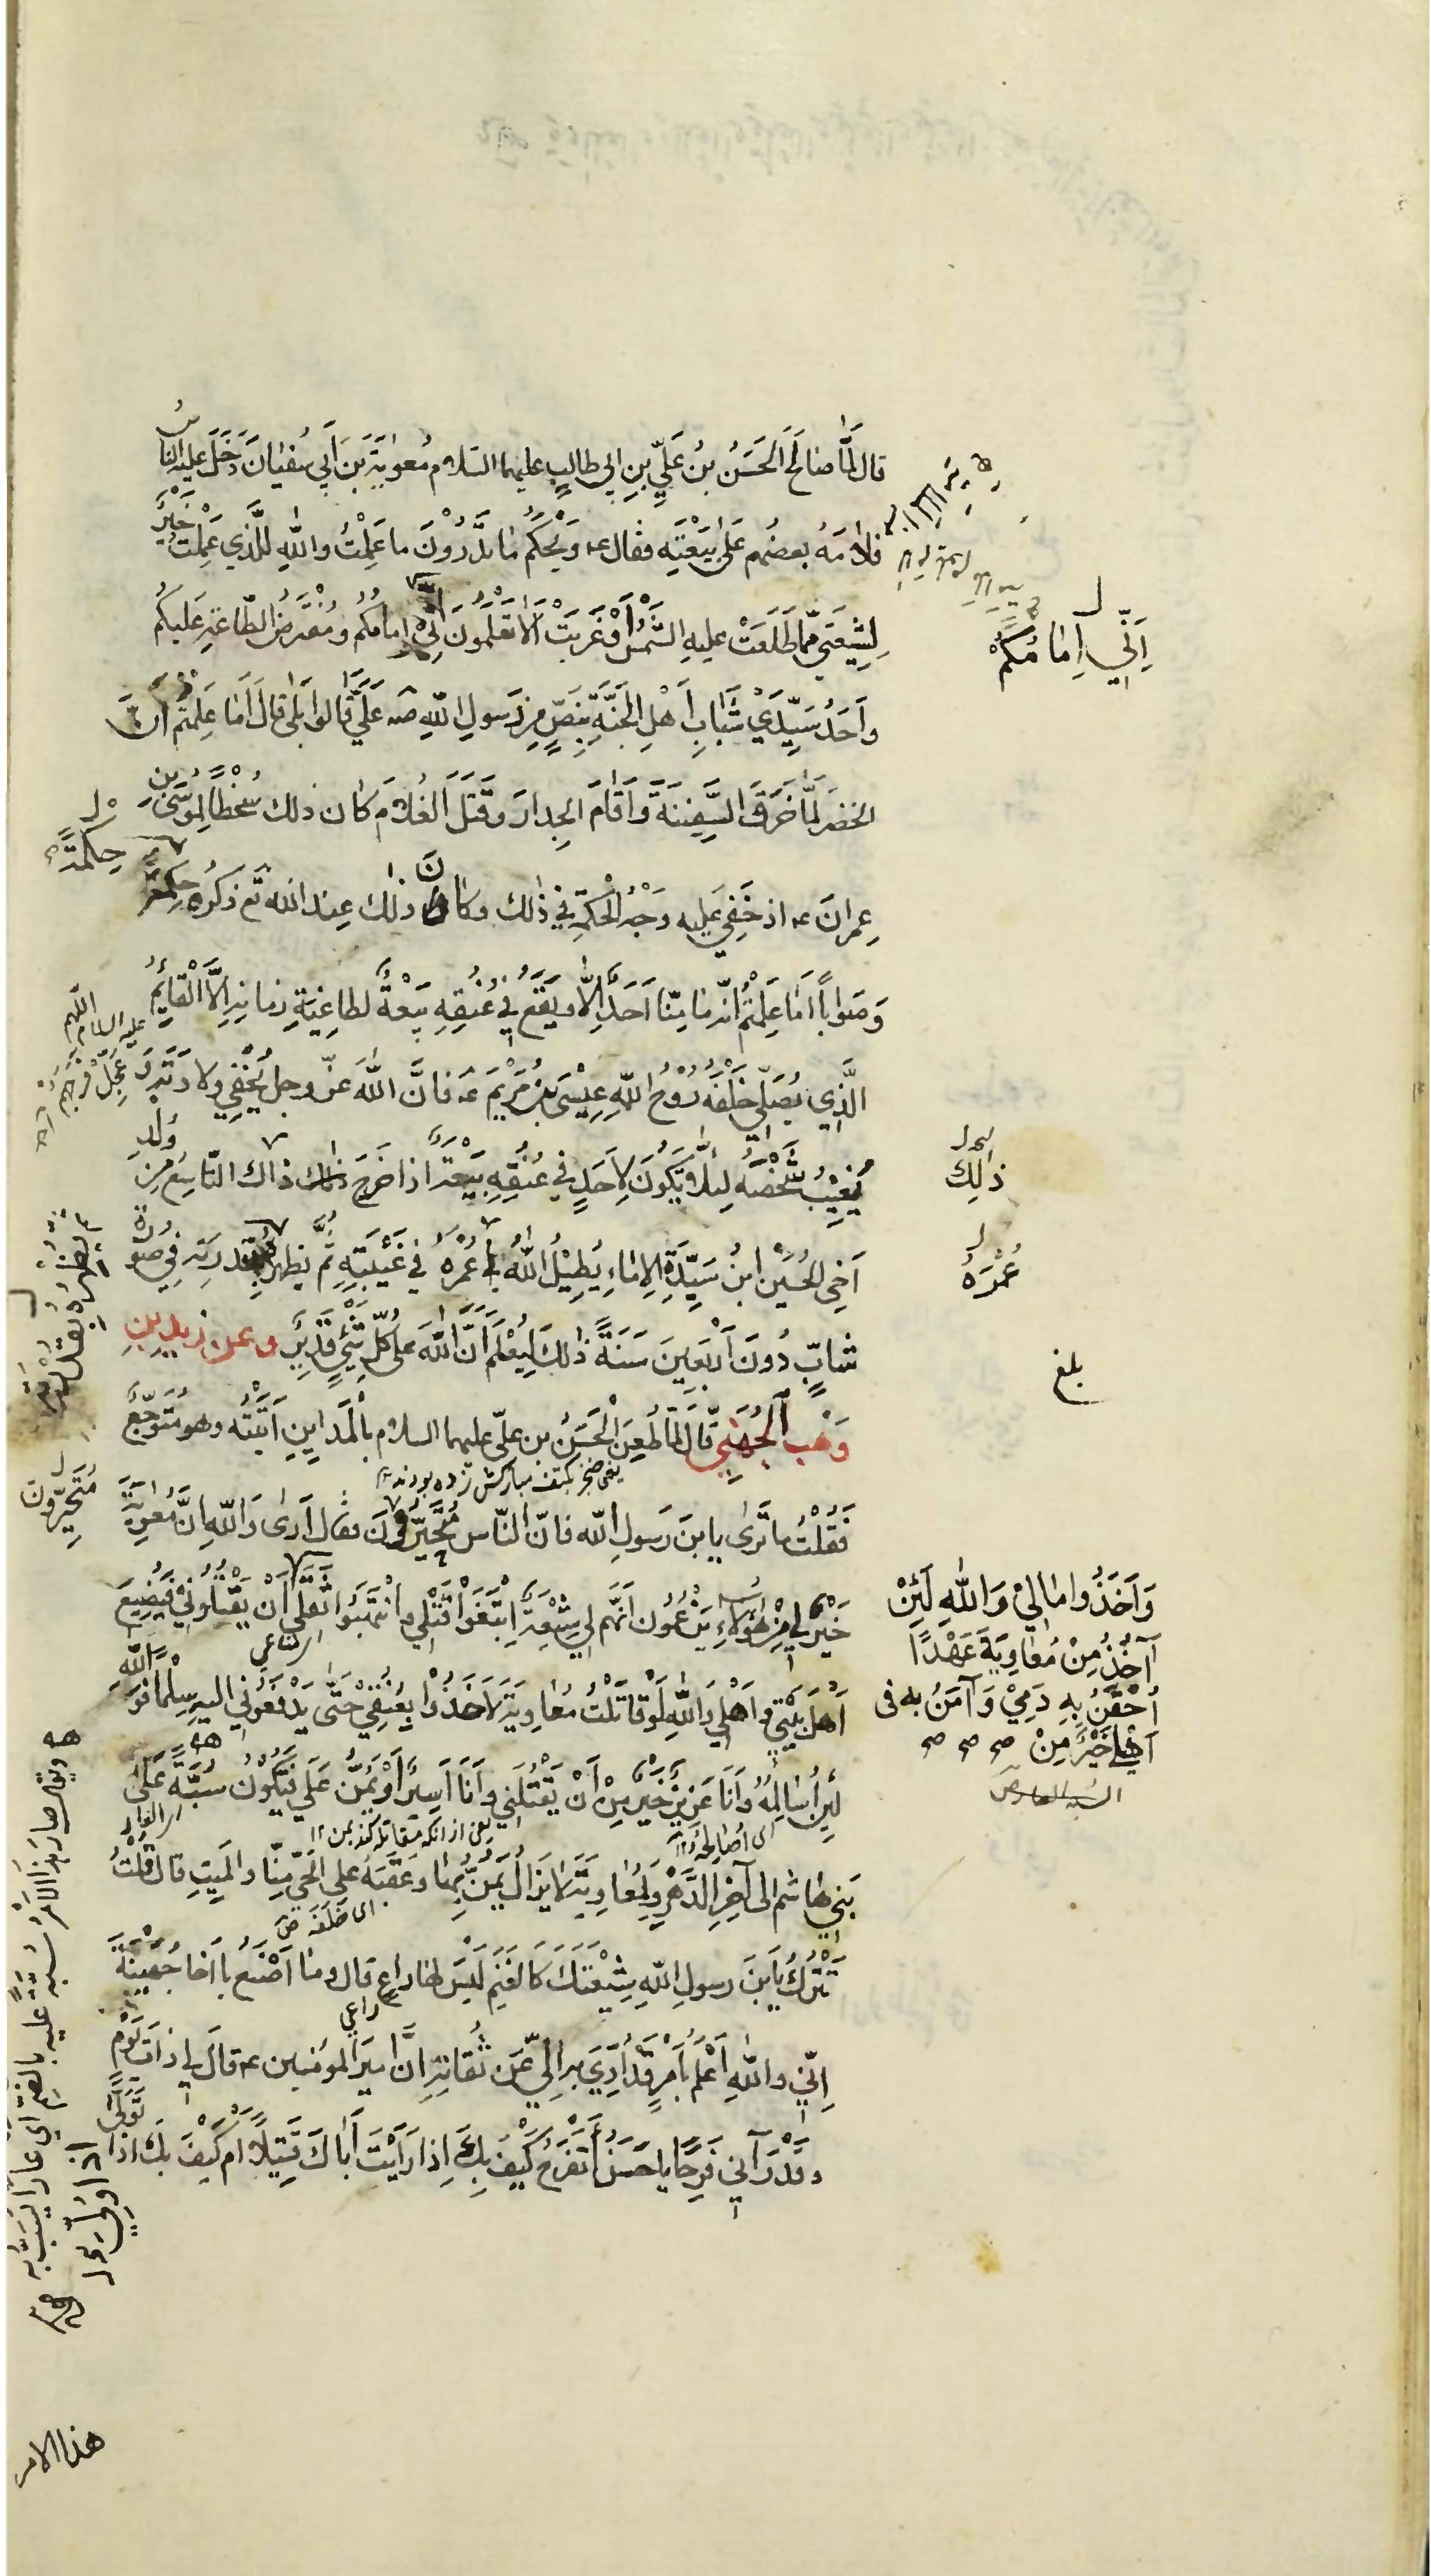 قال لَمَّا صَالَحَ الحَسَنُ بنُ عَلِيِّ بنِ ابی طالبٍ عليهما السّلام مُعٰوِيَةَ بنَ أَبي سُفيٰانَ دَخَلَ عليهِ النّاسُ
فلامَهُ بعضُهم عَلىٰ بَيْعَتِهِ فقال عه وَيْحَكُم مٰا تَدْرُوْنَ ما عَمِلْتُ واللهِ لَلَّذي عَمِلْتُ خَيْرٌ
لِشِيْعَتي مِمّا طَلَعَتْ عليهِ الشَّمْسُ أَوْ غَرَبَتْ اَلاٰ تَعْلَمُوْنَ اَنِّي اِمامُكُم ومُفْتَرَضُ الطّاعَةِ عَلَيكُم
اِنّي اِمٰامُكُمْ
وَاَحَدُ سَيِّدَيْ شَبَابِ اَهْلِ الجَنَّةِ بِنَصٍّ مِن رَسولِ اللهِ صه عَلَيَّ قٰالُوا بَلىٰ قالَ اَمٰا عَلِمْتُم اَنَّ
الخضرَ لَمَّا خَرَقَ السَّفِينَةَ وَاَقٰامَ الجِدارَ وَقَتَلَ الغُلامَ كانَ ذلك سُخْطًا لِمُوْسَى بنِ
عِمرانَ عه اذ خَفِيَ عَلَيهِ وَجْهُ الحِكْمَةِ في ذٰلك وكانَ ذٰلك عِندَ اللهِ تع ذكرُه حِكمَةً
حِكْمَةً
وَصَوٰاباً اَمَا عَلِمْتُم اَنّه ما مِنّا اَحَدٌ اِلَّا ويَقَعُ فِي عُنُقِهِ بَيْعَةٌ لطاغِيَةِ زمانِهِ اِلَّا الْقٰائِمُ
عليه السلام اللّهم عَجِّلْ فَرَجَهُ
الَّذي يُصَلّي خَلْفَهُ رُوْحُ اللهِ عِيْسَى بنُ مَرْيَمَ عه فانَّ اللهَ عزّ وجل يُخْفِي وِلادَتَهُ
ويُغَيِّبُ شَخْصَهُ لِئَلَّا يَكُونَ لِاَحَدٍ في عُنُقِهِ بَيْعَةٌ اذا خَرَجَ ذاك التّاسِعُ مِن وُلْدِ
ذٰلِكَ
اَخِي الحُسَيْنِ ابنُ سَيِّدَةِ الاِمٰاءِ يُطِيْلُ اللهُ عُمْرَهُ في غَيْبَتِهِ ثُمَّ يظهرُه بقدرتِهِ فِي صُوْرَةِ
عُمُرَهُ
ثم يُظْهِرُهُ بِقُدْرَتِهِ
شابٍّ دُونَ أَرْبَعِينَ سَنَةً ذٰلِكَ لِيُعْلَمَ اَنَّ اللهَ عَلىٰ كُلِّ شَيْءٍ قَدِيْرٌ وعن زيدِ بنِ
بلغ
وَهْبٍ الجُهَنِيِّ قالَ لَمّا طُعِنَ الْحَسَنُ بن عليّ عليهما السلام بالْمَدٰاينِ اَتَيْتُه وهو مُتَوَجِّعٌ
يعنی خنجر بكتف مباركش زده بودند
فَقُلْتُ ما تَرىٰ يا بنَ رَسولِ الله فانّ النّاس مُتَحَيِّرُوْنَ فقالَ اَرىٰ وَاللهِ اِنَّ مُعٰوِيَةَ
مُتَحَيِّرُونَ
خَيْرٌ لِي مِنْ هٰؤُلاءِ يَزْعُمُونَ اَنَّهُم لِي شِيْعَةٌ اِبْتَغَوْا قَتْلِي وانْتَهَبُوا ثَقَلِي
وَاَخَذُوا مٰالِيْ وَاللهِ لَئِنْ
آخُذُ مِنْ مُعٰاوِيَةَ عَهْدًا
اُحْقَنُ بِهِ دَمِيْ وَآمَنُ بِه فى
اَهْلِي خَيْرٌ مِنْ صح صح صح
اَنْ يَقْتُلُوْنِي فَيَضِيْعَ
اَهْلُ بَيْتِي وَاَهْلِي وَاللهِ لَوْ قٰاتَلْتُ مُعٰاوِيَةَ لَاَخَذُوْا بِعُنُقِيْ حَتّىٰ يَدْفَعُوني اليهِ سِلْمًا فَوَاللهِ
لَئِن اُسٰالِمْهُ وَاَنَا عَزِيْزٌ خَيْرٌ مِنْ اَنْ يَقْتُلَنِي وَاَنَا اَسِيْرٌ اَوْ يَمُنَّ عَلَيَّ فتَكُوْنُ سُبَّةً عَلىٰ
ای اُصٰالِحْهُ
بَنِي هٰاشمٍ الى آخِرِ الدَّهْرِ وَلِمُعٰاوِيَةَ لاٰ يَزٰالُ يَمُنُّ بِهٰا وَعَقِبُهُ عَلَى الحَيِّ مِنّا والمَيِّتِ قال قُلْتُ
ای خَلَفُه ص
تَتْرُكُ يا بنَ رسولِ اللهِ شِيْعَتَكَ كَالغَنَمِ لَيْسَ لهٰا راعٍ قال وما اَصْنَعُ يا اَخٰا جُهَيْنَةَ
راعي
اِنّي واللهِ اَعْلَمُ بِاَمْرٍ قَدْ اُدِّيَ بهِ اِلَيَّ عَن ثُقاتِهِ انَّ اَميرَ المؤمنين عه قالَ لي ذاتَ يَوْمٍ
وقَدْ رَآنِي فَرِحًا يا حَسَنُ اَتَفْرَحُ كَيْفَ بِكَ اِذا رَاَيْتَ اَبٰاكَ قَتِيْلًا ام كَيْفَ بِكَ اذا
هذا الامر